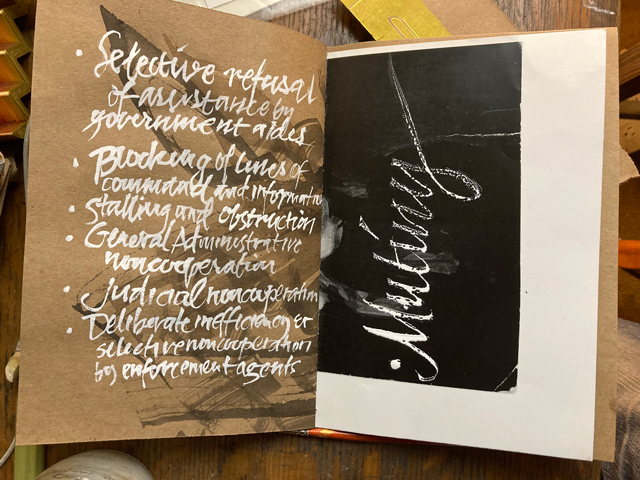 • Selective refusal
of assistance by
government aides
• Blocking of lines of
command and information
• Stalling and obstruction
• General Administrative
noncooperation
• Judicial noncooperation
• Deliberate inefficiency &
selective noncooperation
by enforcement agents
• Mutiny